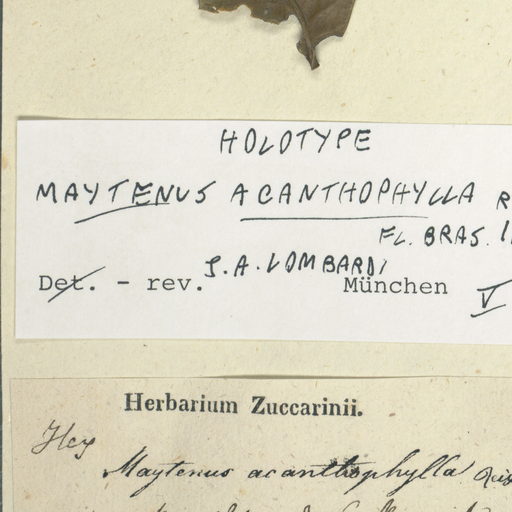 HOLOTYPE
MAYTENUS ACANTHOPHYLLA R
FL. BRAS. 1
J.A. LOMBARDI
Det. - rev. München V
Herbarium Zuccarinii.
Maytenus acanthophylla Reis